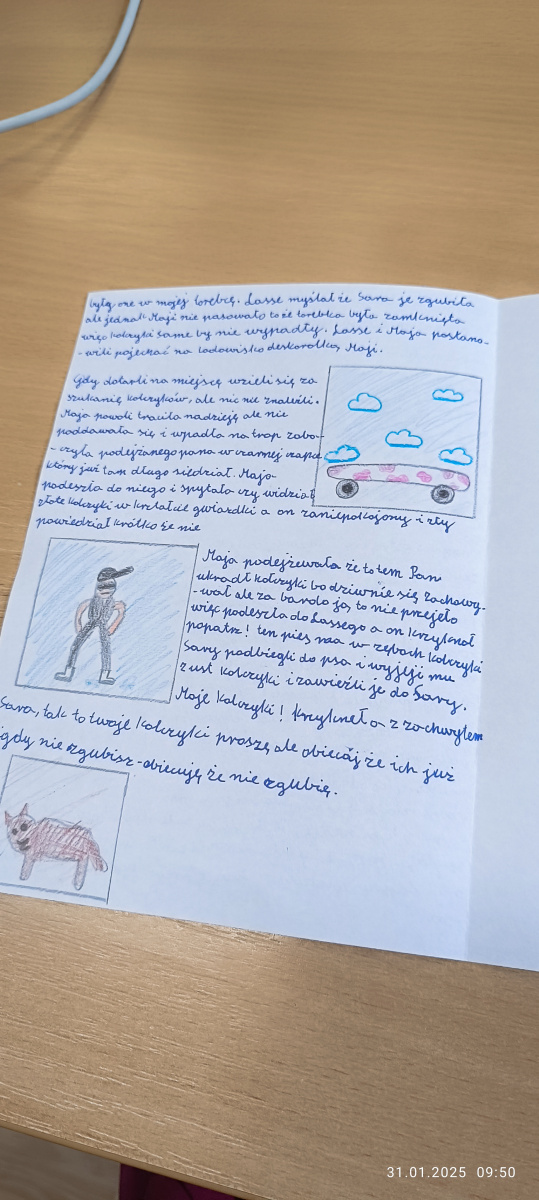 były one w mojej torebce. Lasse myślał że Sara je zgubiła
ale jednak Maji nie pasowało to że torebka była zamknięta
więc kolczyki same by nie wypadły. Lasse i Maja postano-
-wili pojechać na lodowisko deskorolką Maji.
Gdy dotarli na miejscę wzieli się za
szukanie kolczyków, ale nic nie znaleźli.
Maja powoli traciła nadzieją ale nie
poddawała się i wpadła na trop zoba-
-czyła podejżanego pana w czarnej czapce
który już tam długo siedział. Maja
podeszła do niego i spytała czy widział
złote kolczyki w kształcie gwiazdki a on zaniepokojony i zły
powiedział krótko że nie
Maja podejżewała że to tem Pan
ukradł kolczyki bo dziwnie się zachowy-
-wał ale za bardo ją to nie przejeło
więc podeszła do Lassego a on krzyknął
popatrz! ten pies ma w zębach kolczyki
Sary podbiegli do psa i wyjęji mu
z ust kolczyki i zawieźli je do Sary.
Moje kolczyki! krzyknęła z zachwytem
Sara, tak to twoje kolczyki proszę ale obiecaj że ich już
gdy nie zgubisz-obiecuję że nie zgubię.
31.01.2025 09:50